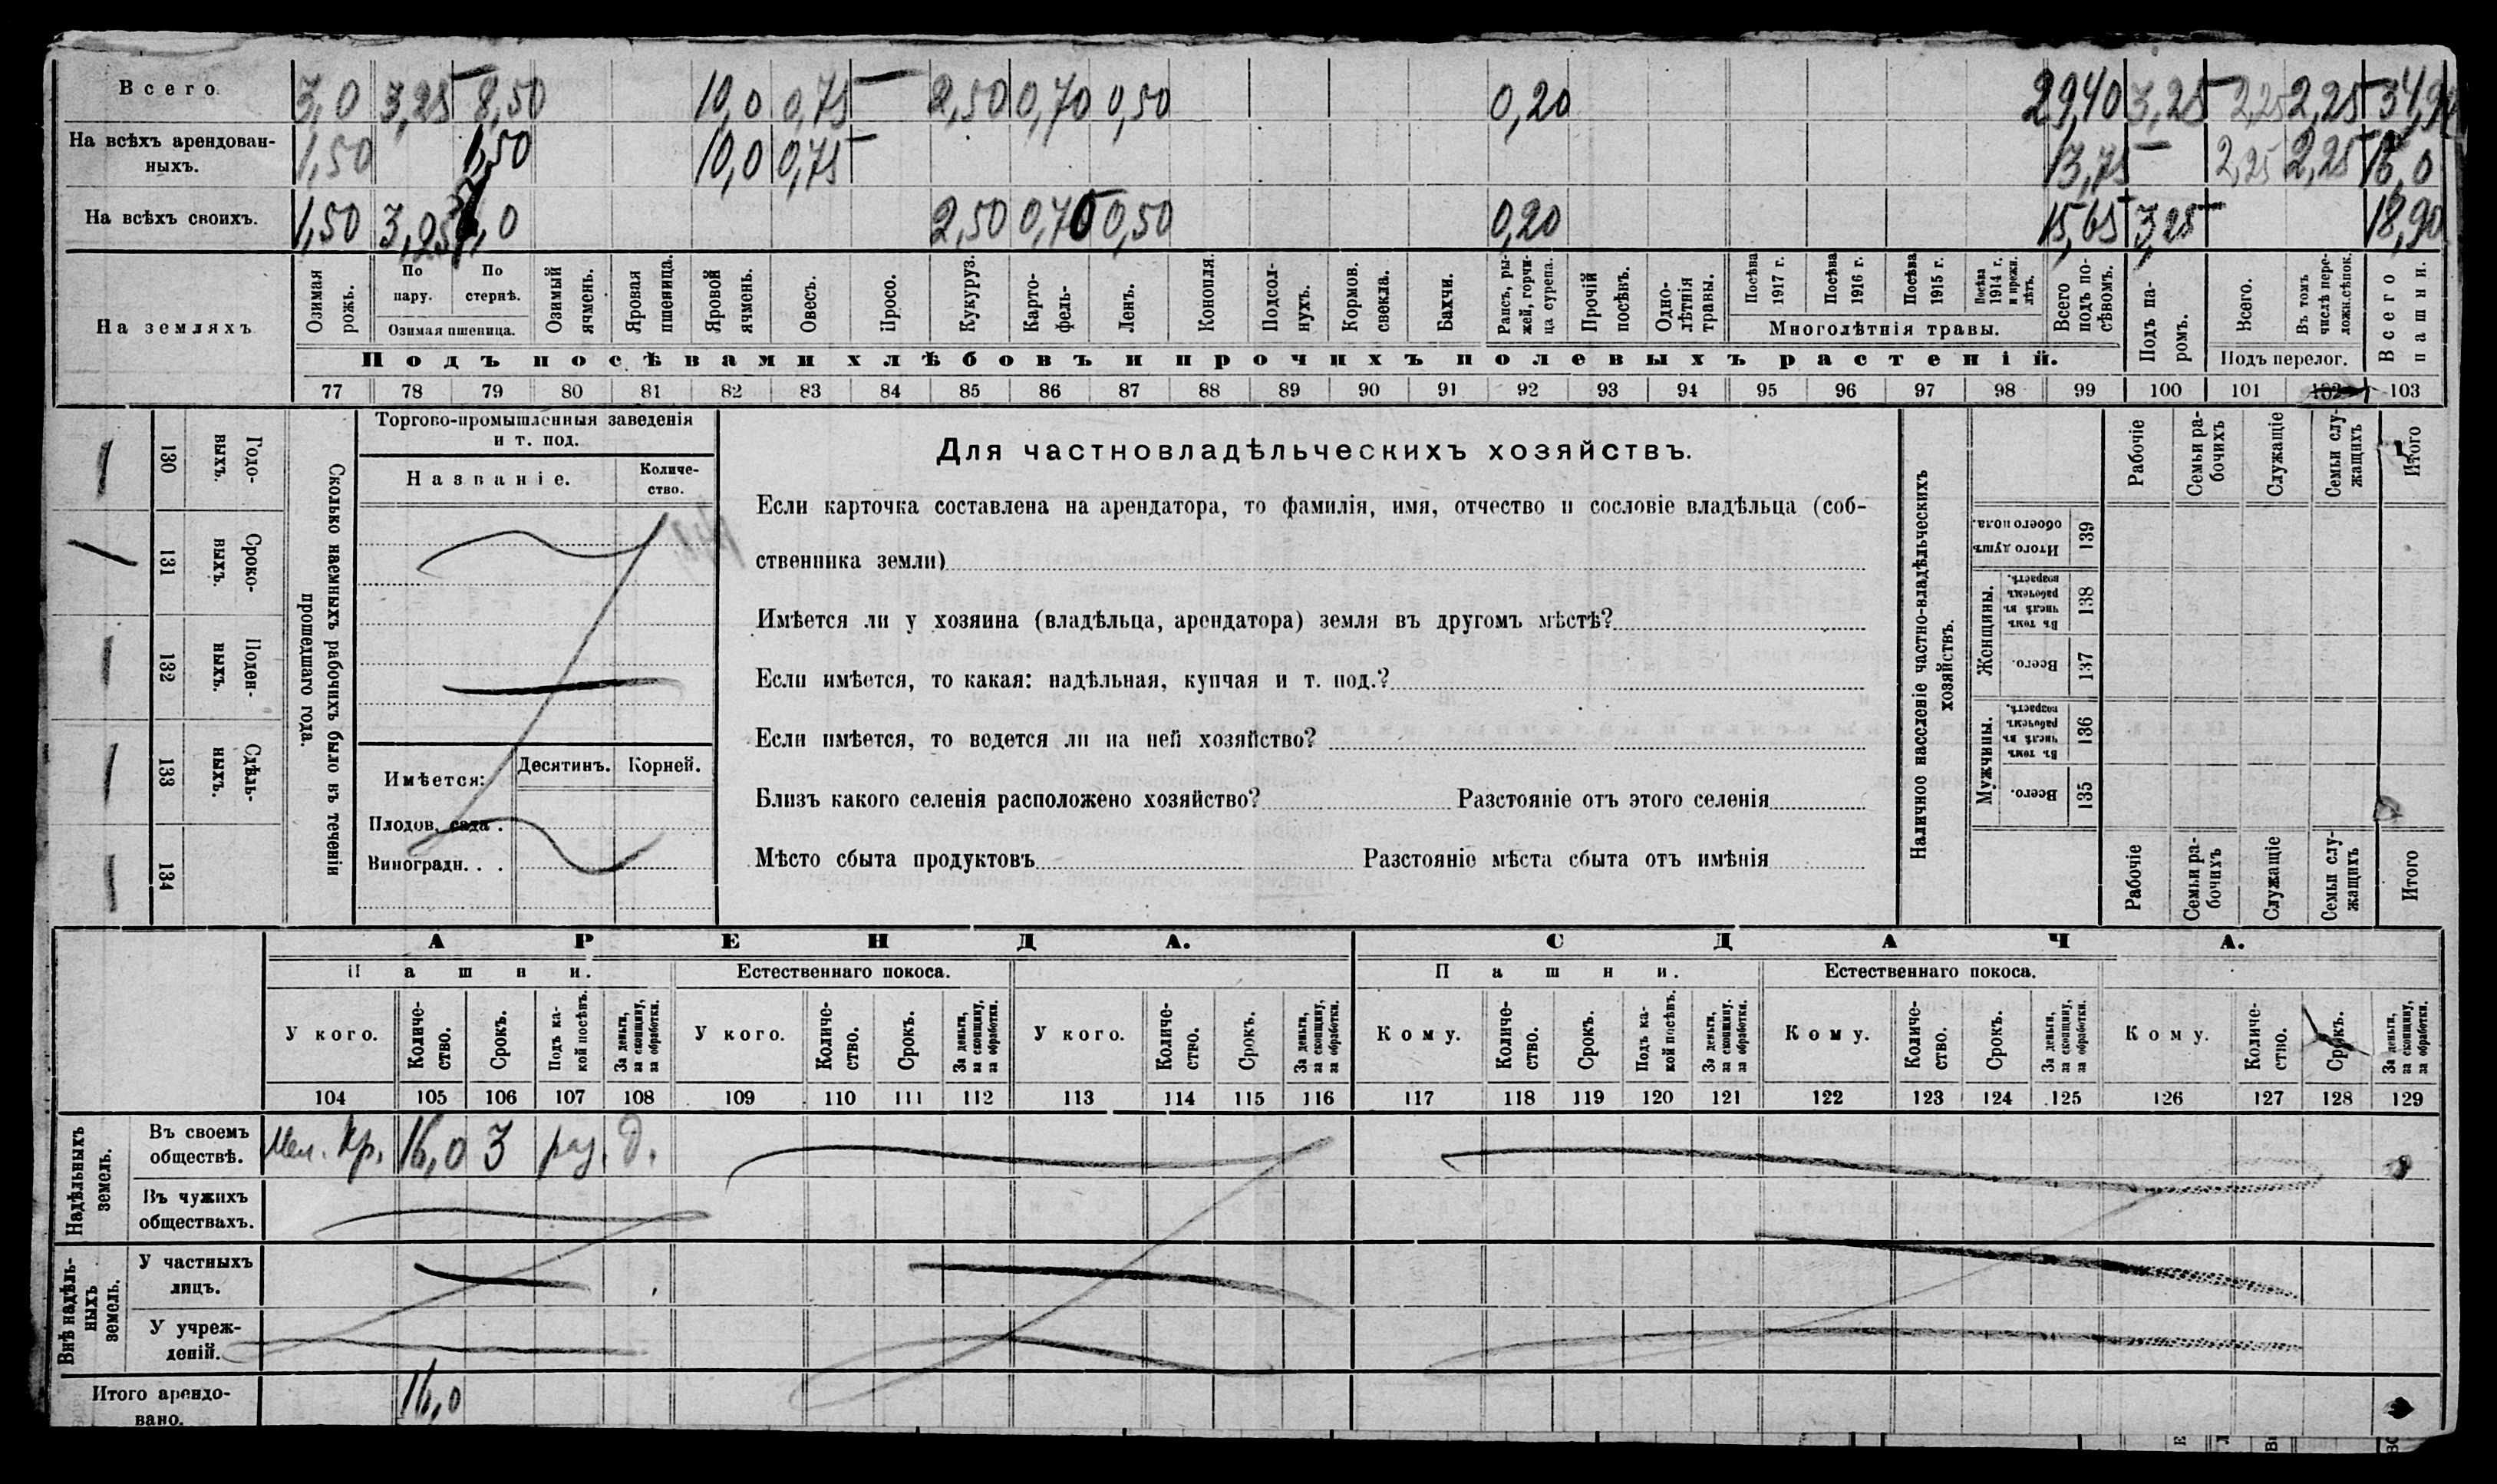 Всего. 3,0 3,25 8,50 10,0 0,75 2,50 0,70 0,50 0,20 29,40 3,25 2,25 2,25 34,90
На всѣхъ арендован-
ныхъ. 1,50 1,50 10,0 0,75 13,75 — 2,25 2,25 16,0
На всѣхъ своихъ. 1,50 3,25 2,50 0,70 0,50 0,20 15,65 3,25 18,90
На земляхъ
Озимая рожь.
По пару.
По стернѣ.
Озимая пшеница.
Озимый ячмень.
Яровая пшеница.
Яровой ячмень.
Овесъ.
Просо.
Кукуруз.
Карто-
фель-
Ленъ.
Конопля.
Подсол-
нухъ.
Кормов. свекла.
Бахчи.
Рапсъ, ры-
жей, горчи-
ца сурепа.
Прочій посѣвъ.
Одно-
лѣтнія травы.
Посѣва 1917 г.
Посѣва 1916 г.
Посѣва 1915 г.
Посѣва 1914 г. и прежн. лѣтъ.
Многолѣтнія травы.
Всего подъ по-
сѣвомъ.
Подъ па-
ромъ.
Всего.
Въ томъ числѣ пере-
ложн. сѣнок.
Подъ перелог.
Всего пашни.
Подъ посѣвами хлѣбовъ и прочихъ полевыхъ растеній.
77 78 79 80 81 82 83 84 85 86 87 88 89 90 91 92 93 94 95 96 97 98 99 100 101 102 103
130 Годо-
выхъ.
131 Сроко-
выхъ.
132 Поден-
ныхъ.
133 Сдѣль-
ныхъ.
134
Сколько наемныхъ рабочихъ было въ теченіи
прошедшаго года.
Торгово-промышленныя заведенія
и т. под.
Названіе.
Количе-
ство.
Имѣется: Десятинъ. Корней.
Плодов. сада .
Виноградн. . .
Для частновладѣльческихъ хозяйствъ.
Если карточка составлена на арендатора, то фамилія, имя, отчество и сословіе владѣльца (соб-
ственника земли)
Имѣется ли у хозяина (владѣльца, арендатора) земля въ другомъ мѣстѣ?
Если имѣется, то какая: надѣльная, купчая и т. под.?
Если имѣется, то ведется ли на ней хозяйство?
Близъ какого селенія расположено хозяйство? Разстояніе отъ этого селенія
Мѣсто сбыта продуктовъ Разстояніе мѣста сбыта отъ имѣнія
Наличное населеніе частно-владѣльческихъ
хозяйствъ.
Итого душъ обоего пола. 139
Женщины.
Въ томъ числѣ въ рабочемъ возрастѣ. 138
Всего. 137
Мужчины.
Въ томъ числѣ въ рабочемъ возрастѣ. 136
Всего. 135
Рабочіе
Семьи ра-
бочихъ
Служащіе
Семьи слу-
жащихъ
Итого
Рабочіе
Семьи ра-
бочихъ
Служащіе
Семьи слу-
жащихъ
Итого
АРЕНДА. СДАЧА.
Пашни. Естественнаго покоса. Пашни. Естественнаго покоса.
У кого.
Количе-
ство.
Срокъ.
Подъ ка-
кой посѣвъ.
За деньги, за скопщину, за обработки.
У кого.
Количе-
ство.
Срокъ.
За деньги, за скопщину, за обработки.
У кого.
Количе-
ство.
Срокъ.
За деньги, за скопщину, за обработки.
Кому.
Количе-
ство.
Срокъ.
Подъ ка-
кой посѣвъ.
За деньги, за скопщину, за обработки.
Кому.
Количе-
ство.
Срокъ.
За деньги, за скопщину, за обработки.
Кому.
Количе-
ство.
Срокъ.
За деньги, за скопщину, за обработки.
104 105 106 107 108 109 110 111 112 113 114 115 116 117 118 119 120 121 122 123 124 125 126 127 128 129
Надѣльныхъ
земель.
Въ своемъ
обществѣ. Мел. Кр. 16,0 3 раз. д.
Въ чужихъ
обществахъ.
Внѣ надѣль-
ныхъ
земель.
У частныхъ
лицъ.
У учреж-
деній.
Итого арендо-
вано. 16,0